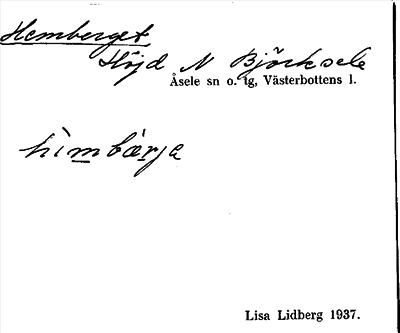 Hemberget
Höjd N Björksele
Åsele sn o. tg, Västerbottens l.
hìmbæ̀rjɐ
Lisa Lidberg 1937.